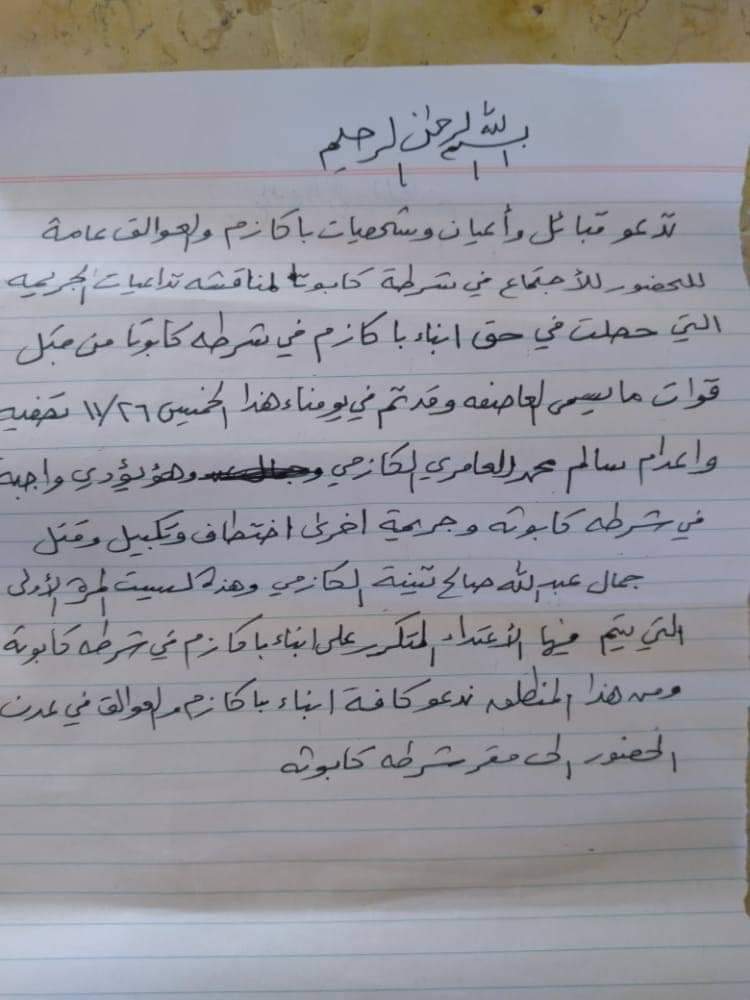 بسم الله الرحمن الرحيم
تدعو قبائل وأعيان وشخصيات باكازم والعوالق عامة
للحضور للأجتماع في شرطة كابوتا لمناقشه تداعيات الجريمه
التي حصلت في حق ابناء باكازم في شرطه كابوتا من قبل
قوات ما يسمى العاصفه وقد تم في يومناء هذا الخميس ١١/٢٦ تصفيه
واعدام سالم محمد العامري الكازمي وهو يؤدي واجبة
في شرطه كابوته وجريمة اخرى اختطاف وتكبيل وقتل
جمال عبدالله صالح تنينة الكازمي وهذة ليست المرة الأولى
التي يتم فيها الأعتداء المتكرر على ابناء باكازم في شرطه كابوتة
ومن هذا المنطلق ندعو كافة ابناء باكازم والعوالق في عدن
الحضور الى مقر شرطه كابوته